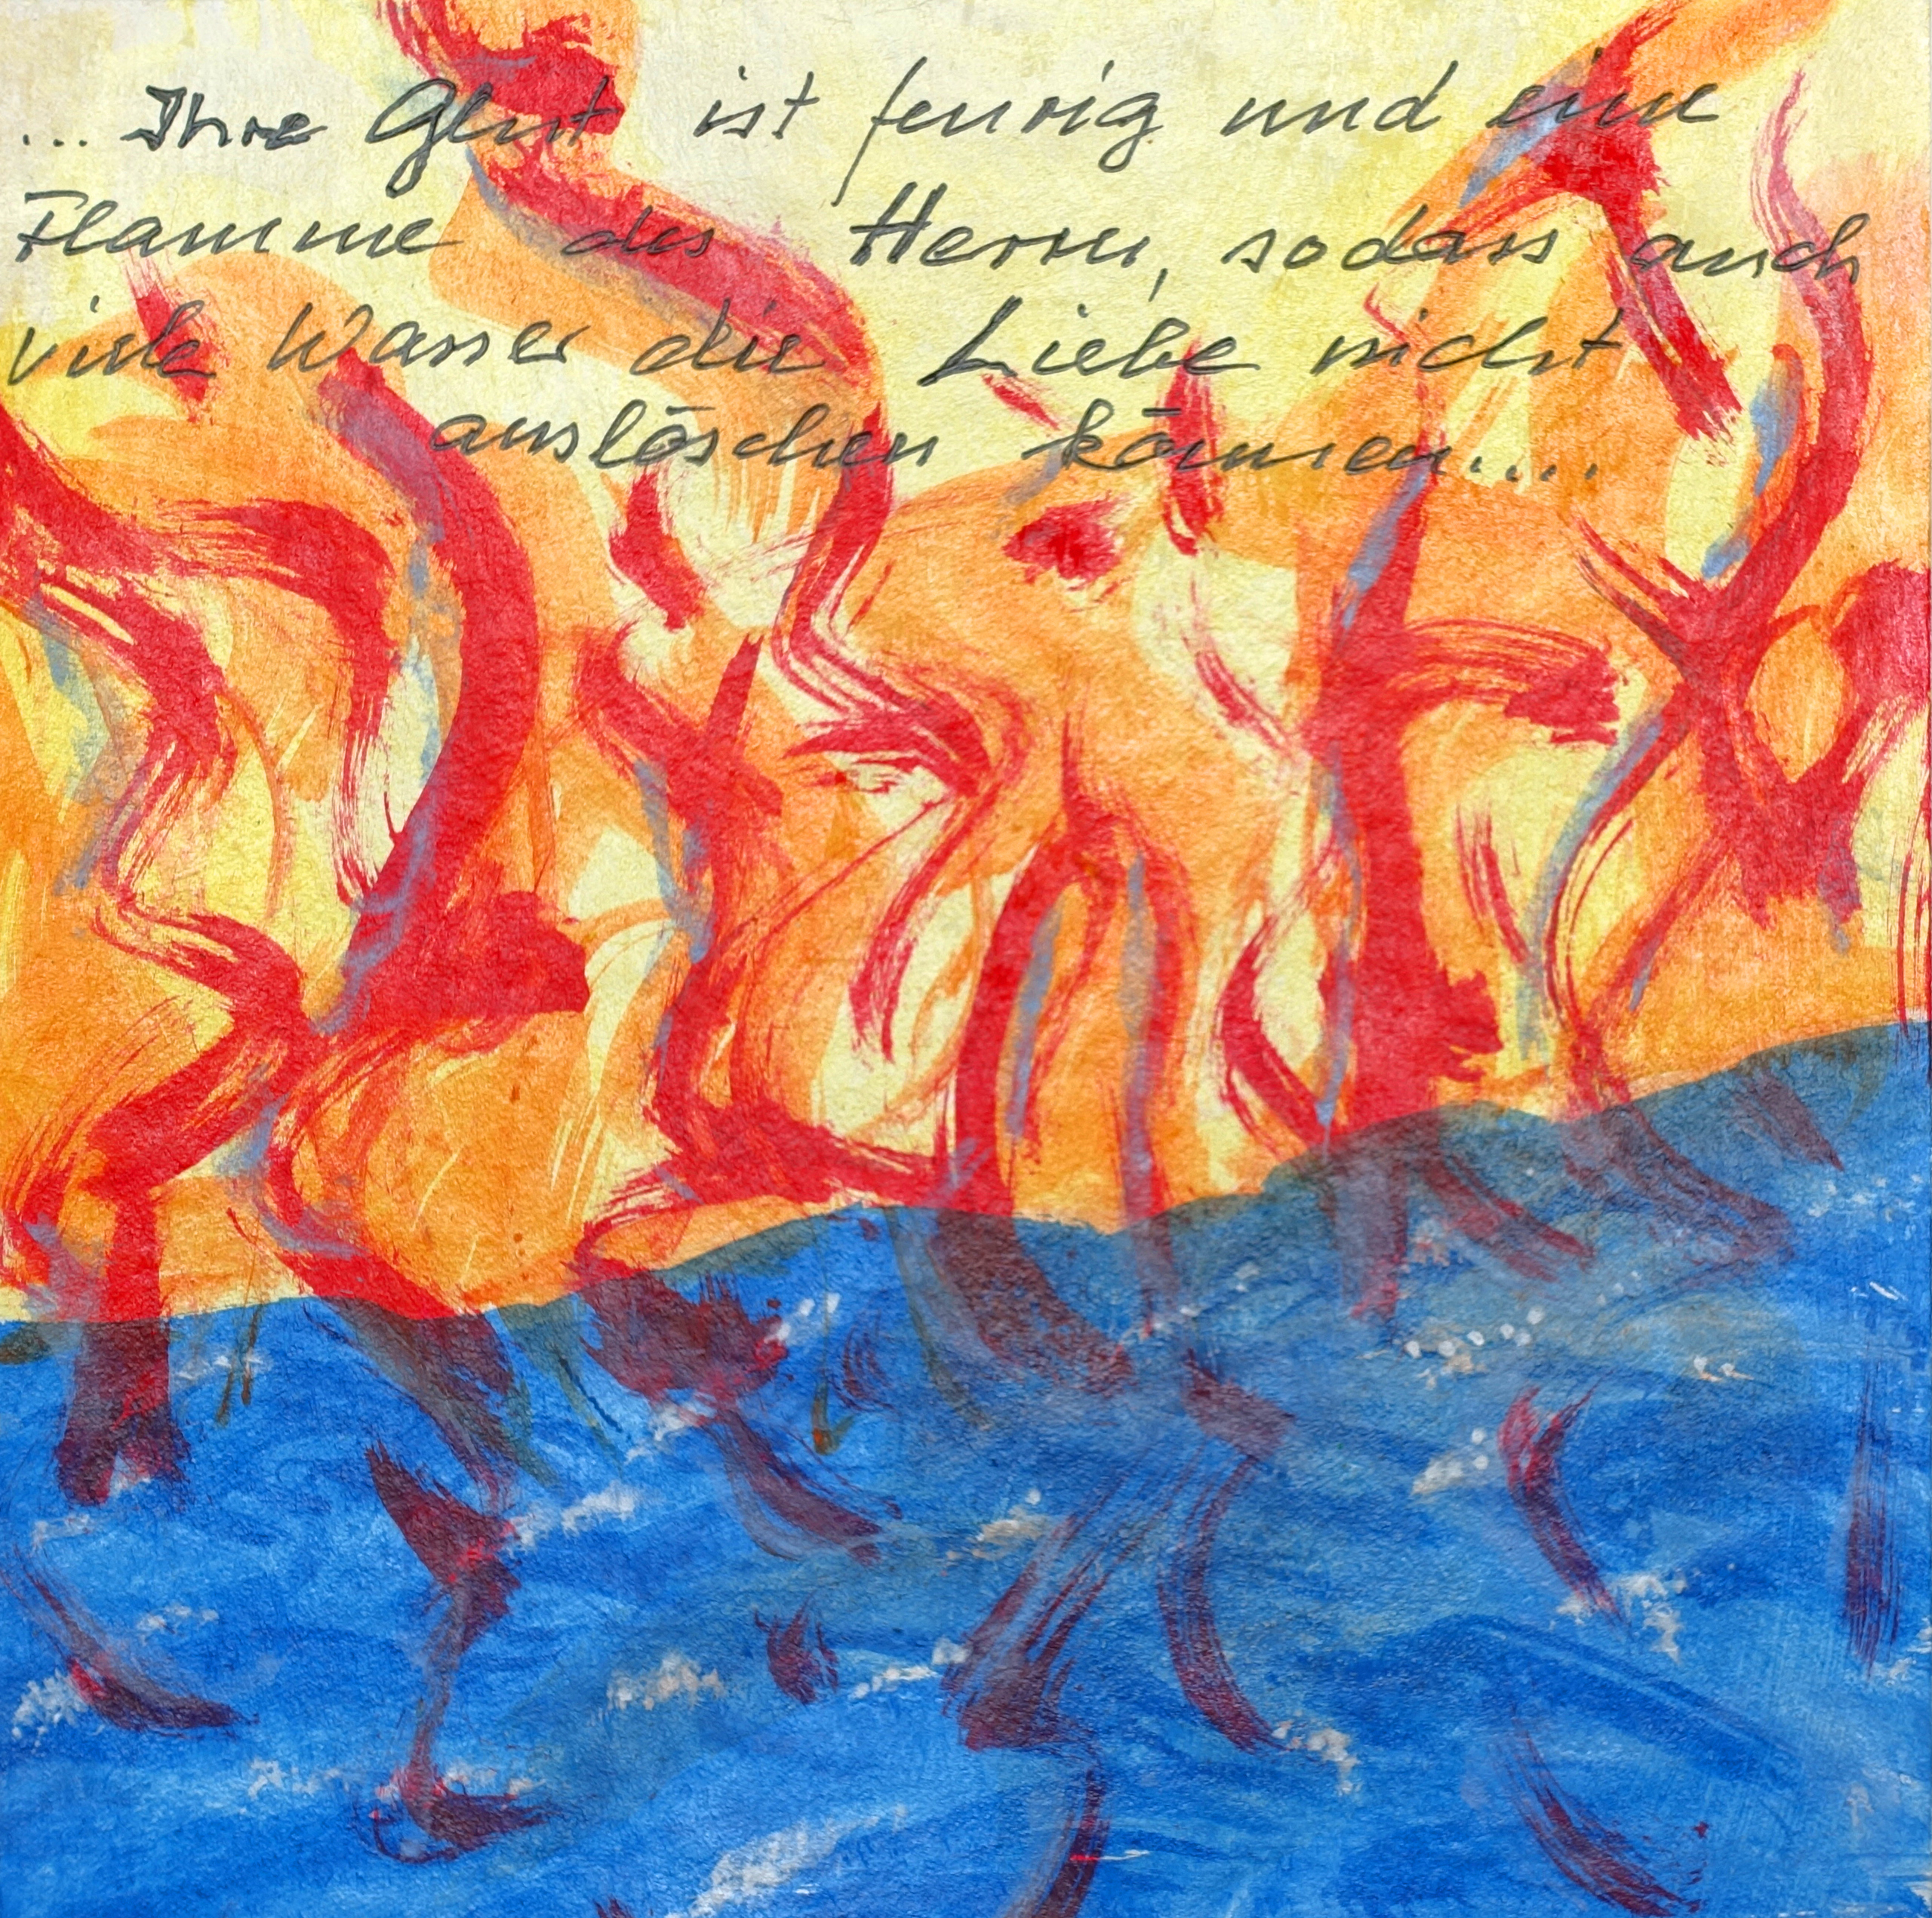 ... Ihre Glut ist feurig und eine
Flamme des Herrn, sodass auch
viele Wasser die Liebe nicht
auslöschen können....